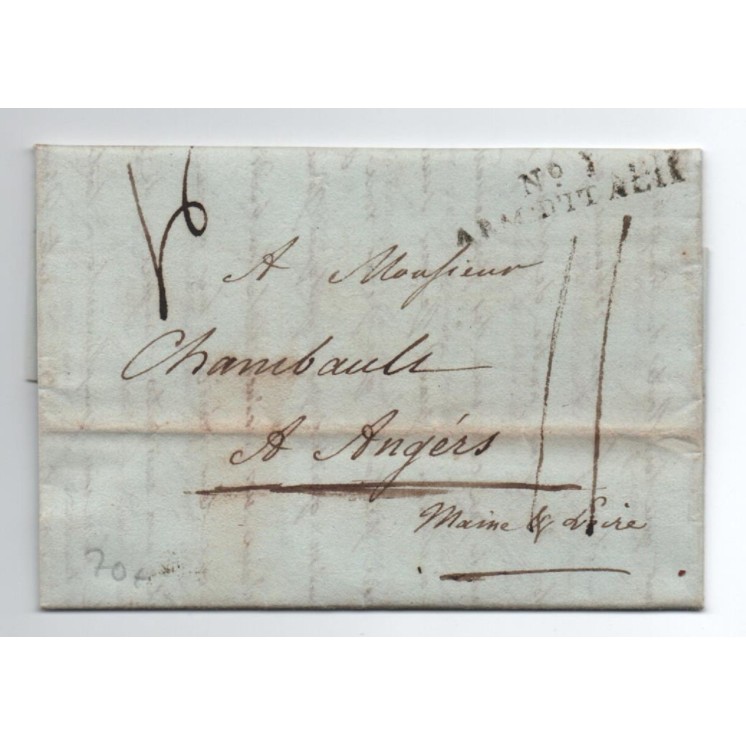 No 1
ARM. D'ITALIE
A Monsieur
Chambault
A Angérs
Maine & Loire
70